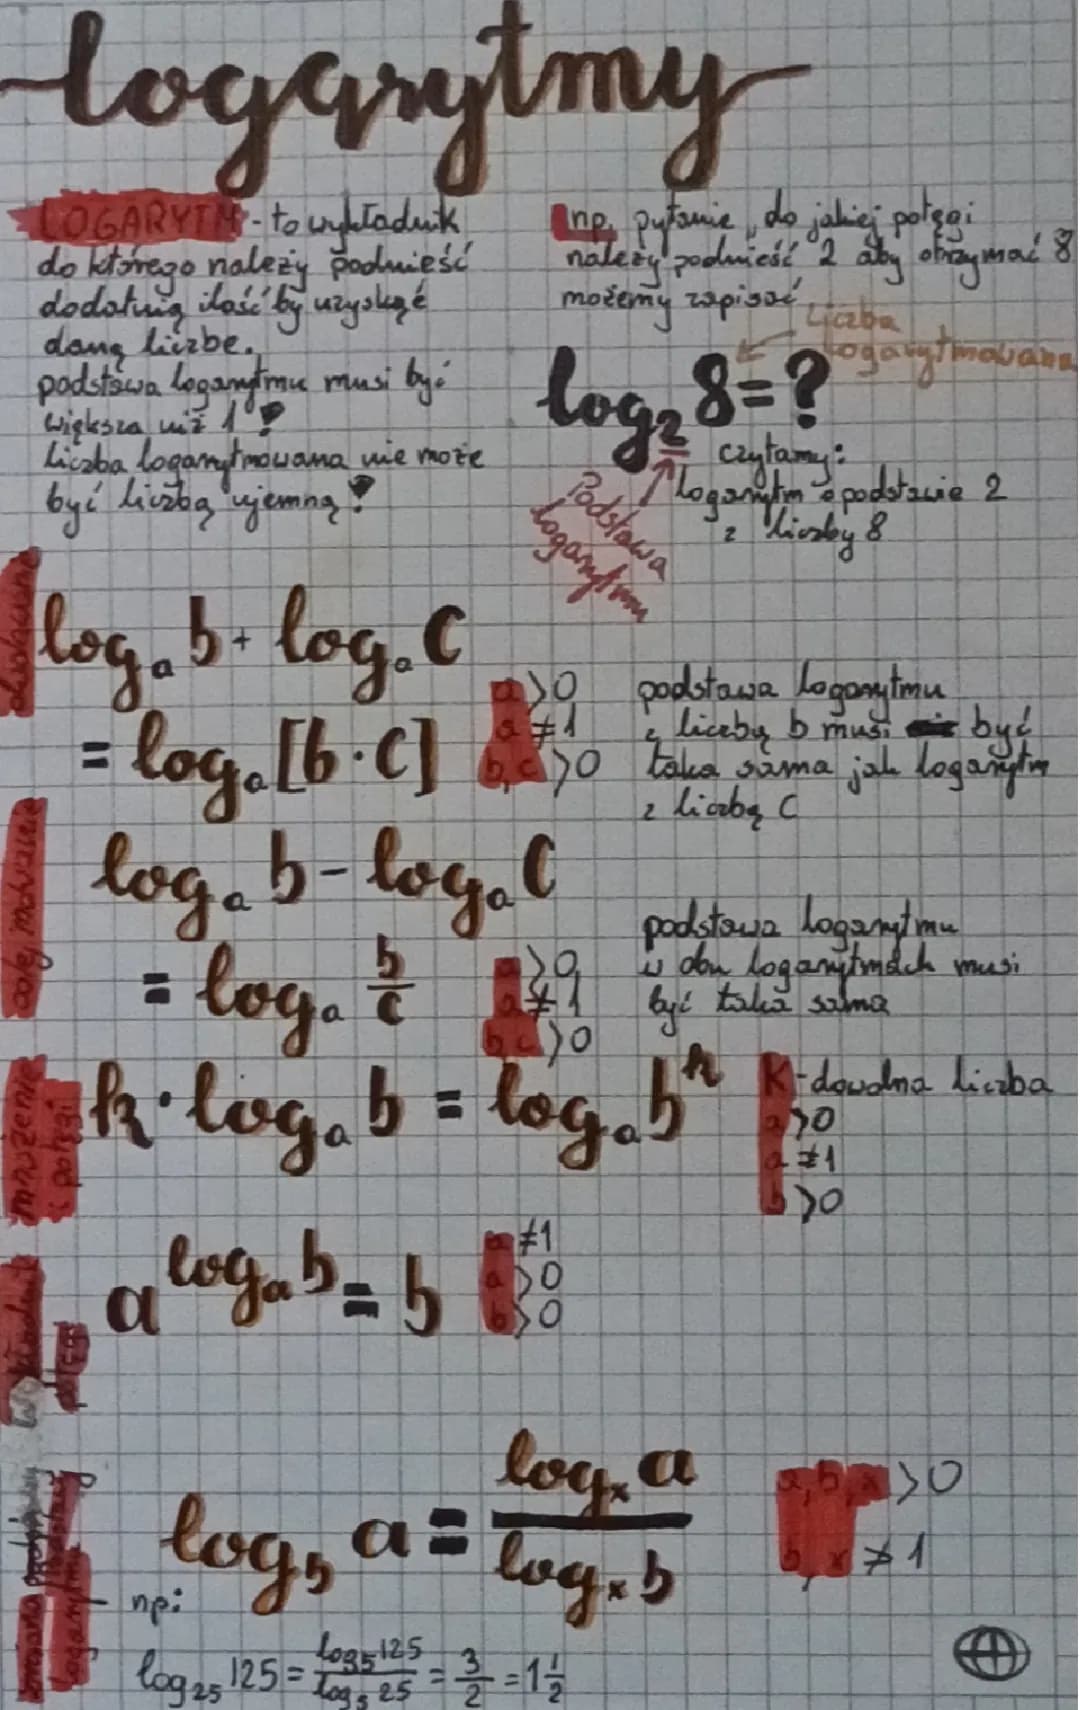 logarytmy
LOGARYTM - to wykładnik
do którego należy podnieść
dodatnią ilość by uzyskąć
daną liczbe.
podstawa logarytmu musi być
większa niż 1!
liczba logarytmowana nie może
być liczbą ujemną!
np. pytanie „do jakiej potęgi
należy podnieść 2 aby otrzymać 8
możemy zapisać
liczba
logarytmowana
log₂ 8 = ?
czytamy:
logarytm o podstawie 2
z liczby 8
Podstawa
logarytmu
dodawanie
logₐ b + logₐ c
= logₐ [b · c]
a > 0
a ≠ 1
b, c > 0
podstawa logarytmu
z liczbą b musi być
taka sama jak logarytm
z liczbą C
odejmowanie
logₐ b - logₐ c
= logₐ b/c
a > 0
a ≠ 1
b, c > 0
podstawa logarytmu
w obu logarytmach musi
być taka sama
mnożenie
i potęgi
k · logₐ b = logₐ bᵏ
K - dowolna liczba
a > 0
a ≠ 1
b > 0
potęgi
a^(logₐ b) = b
a ≠ 1
a > 0
b > 0
zmiana podstawy
logarytmu
log_b a = logₓ a / logₓ b
a, b, x > 0
b, x ≠ 1
np:
log₂₅ 125 = log₅ 125 / log₅ 25 = 3/2 = 1 1/2